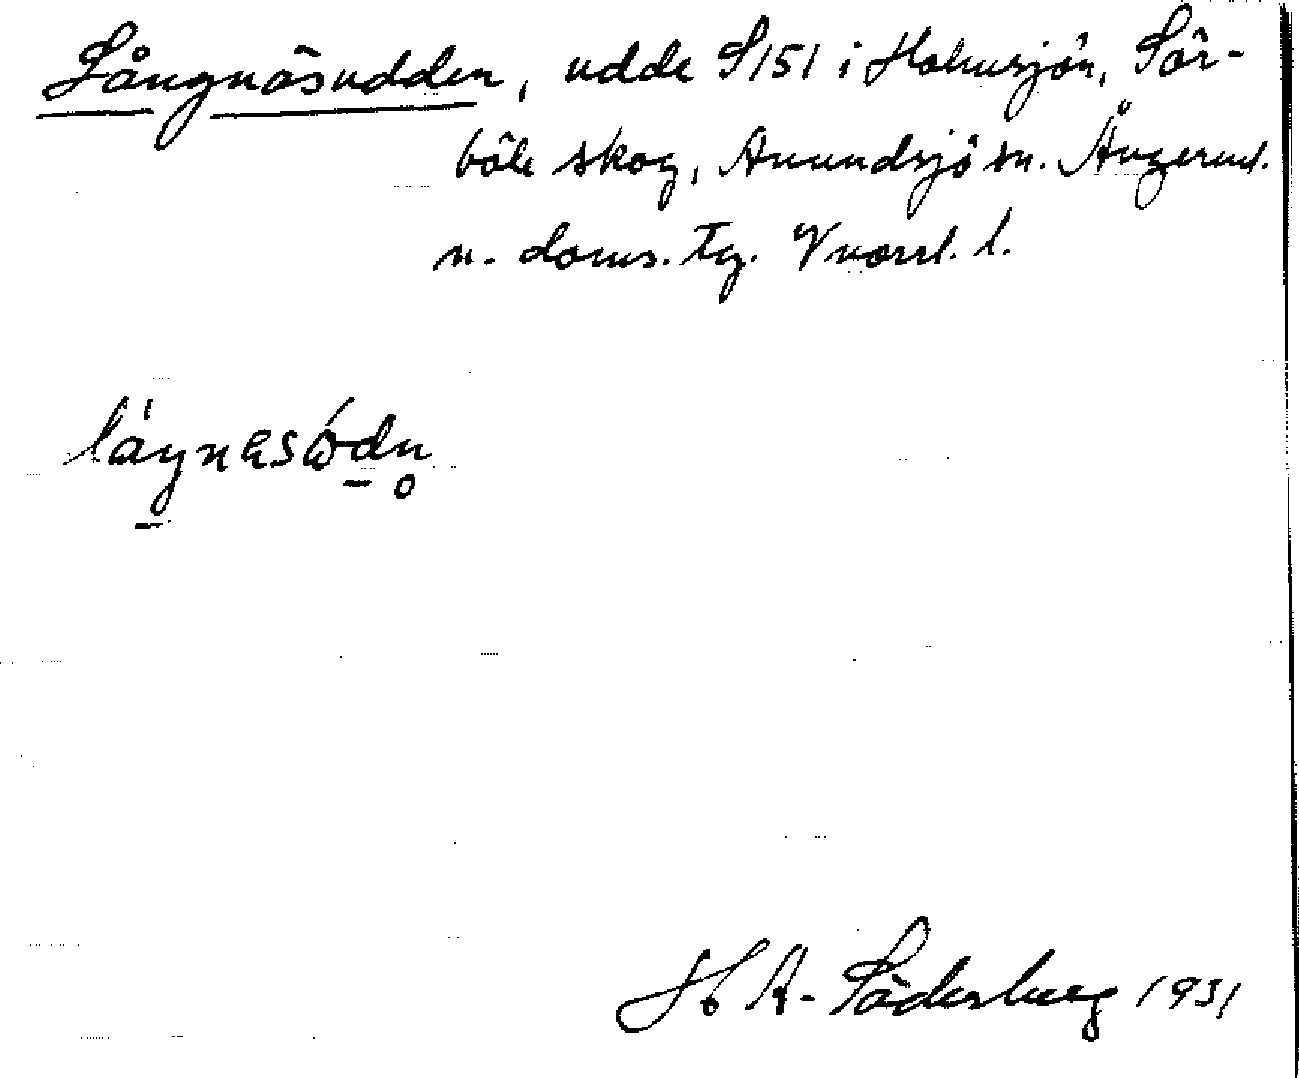 Långnäsudden, udde S151 i Holmsjön, Sör-
böle skog, Anundsjö sn. Ångerml.
n. doms. tg. Vnorrl. l.
H A. Söderberg 1931